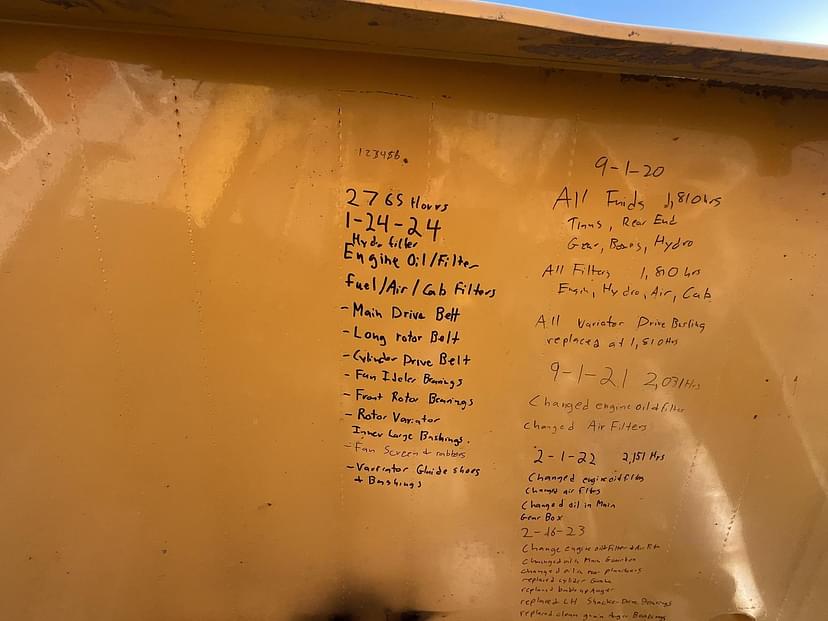 123456.
2765 Hours
1-24-24
Hydro filter
Engine Oil/Filter
Fuel/Air/Cab Filters
- Main Drive Belt
- Long rotor Belt
- Cylinder Drive Belt
- Fan Ideler Bearings
- Front Rotor Bearings
- Rotor Variator
Inner Large Bushings.
- Fan Screen & rubbers
- Varriator Guide shoes
& Bushings
9-1-20
All Fuids 1,810 hrs
Trans, Rear End
Gear, Boxes, Hydro
All Filters 1,810 hrs
Engin, Hydro, Air, Cab
All Variator Drive
replaced at 1,810 Hrs
9-1-21 2,031 Hrs
Changed engine oil & filter
Changed Air Filters
2-1-22 2,151 Hrs
Changed engine oil filter
Changed air
Changed oil in Main
Gear Box
2-16-23
Change engine oil & Filter & Air
oil in Main
changed oil in rear
replaced
replaced Auger
replaced LH Drive Bearings
replaced clean grain Auger Bearings